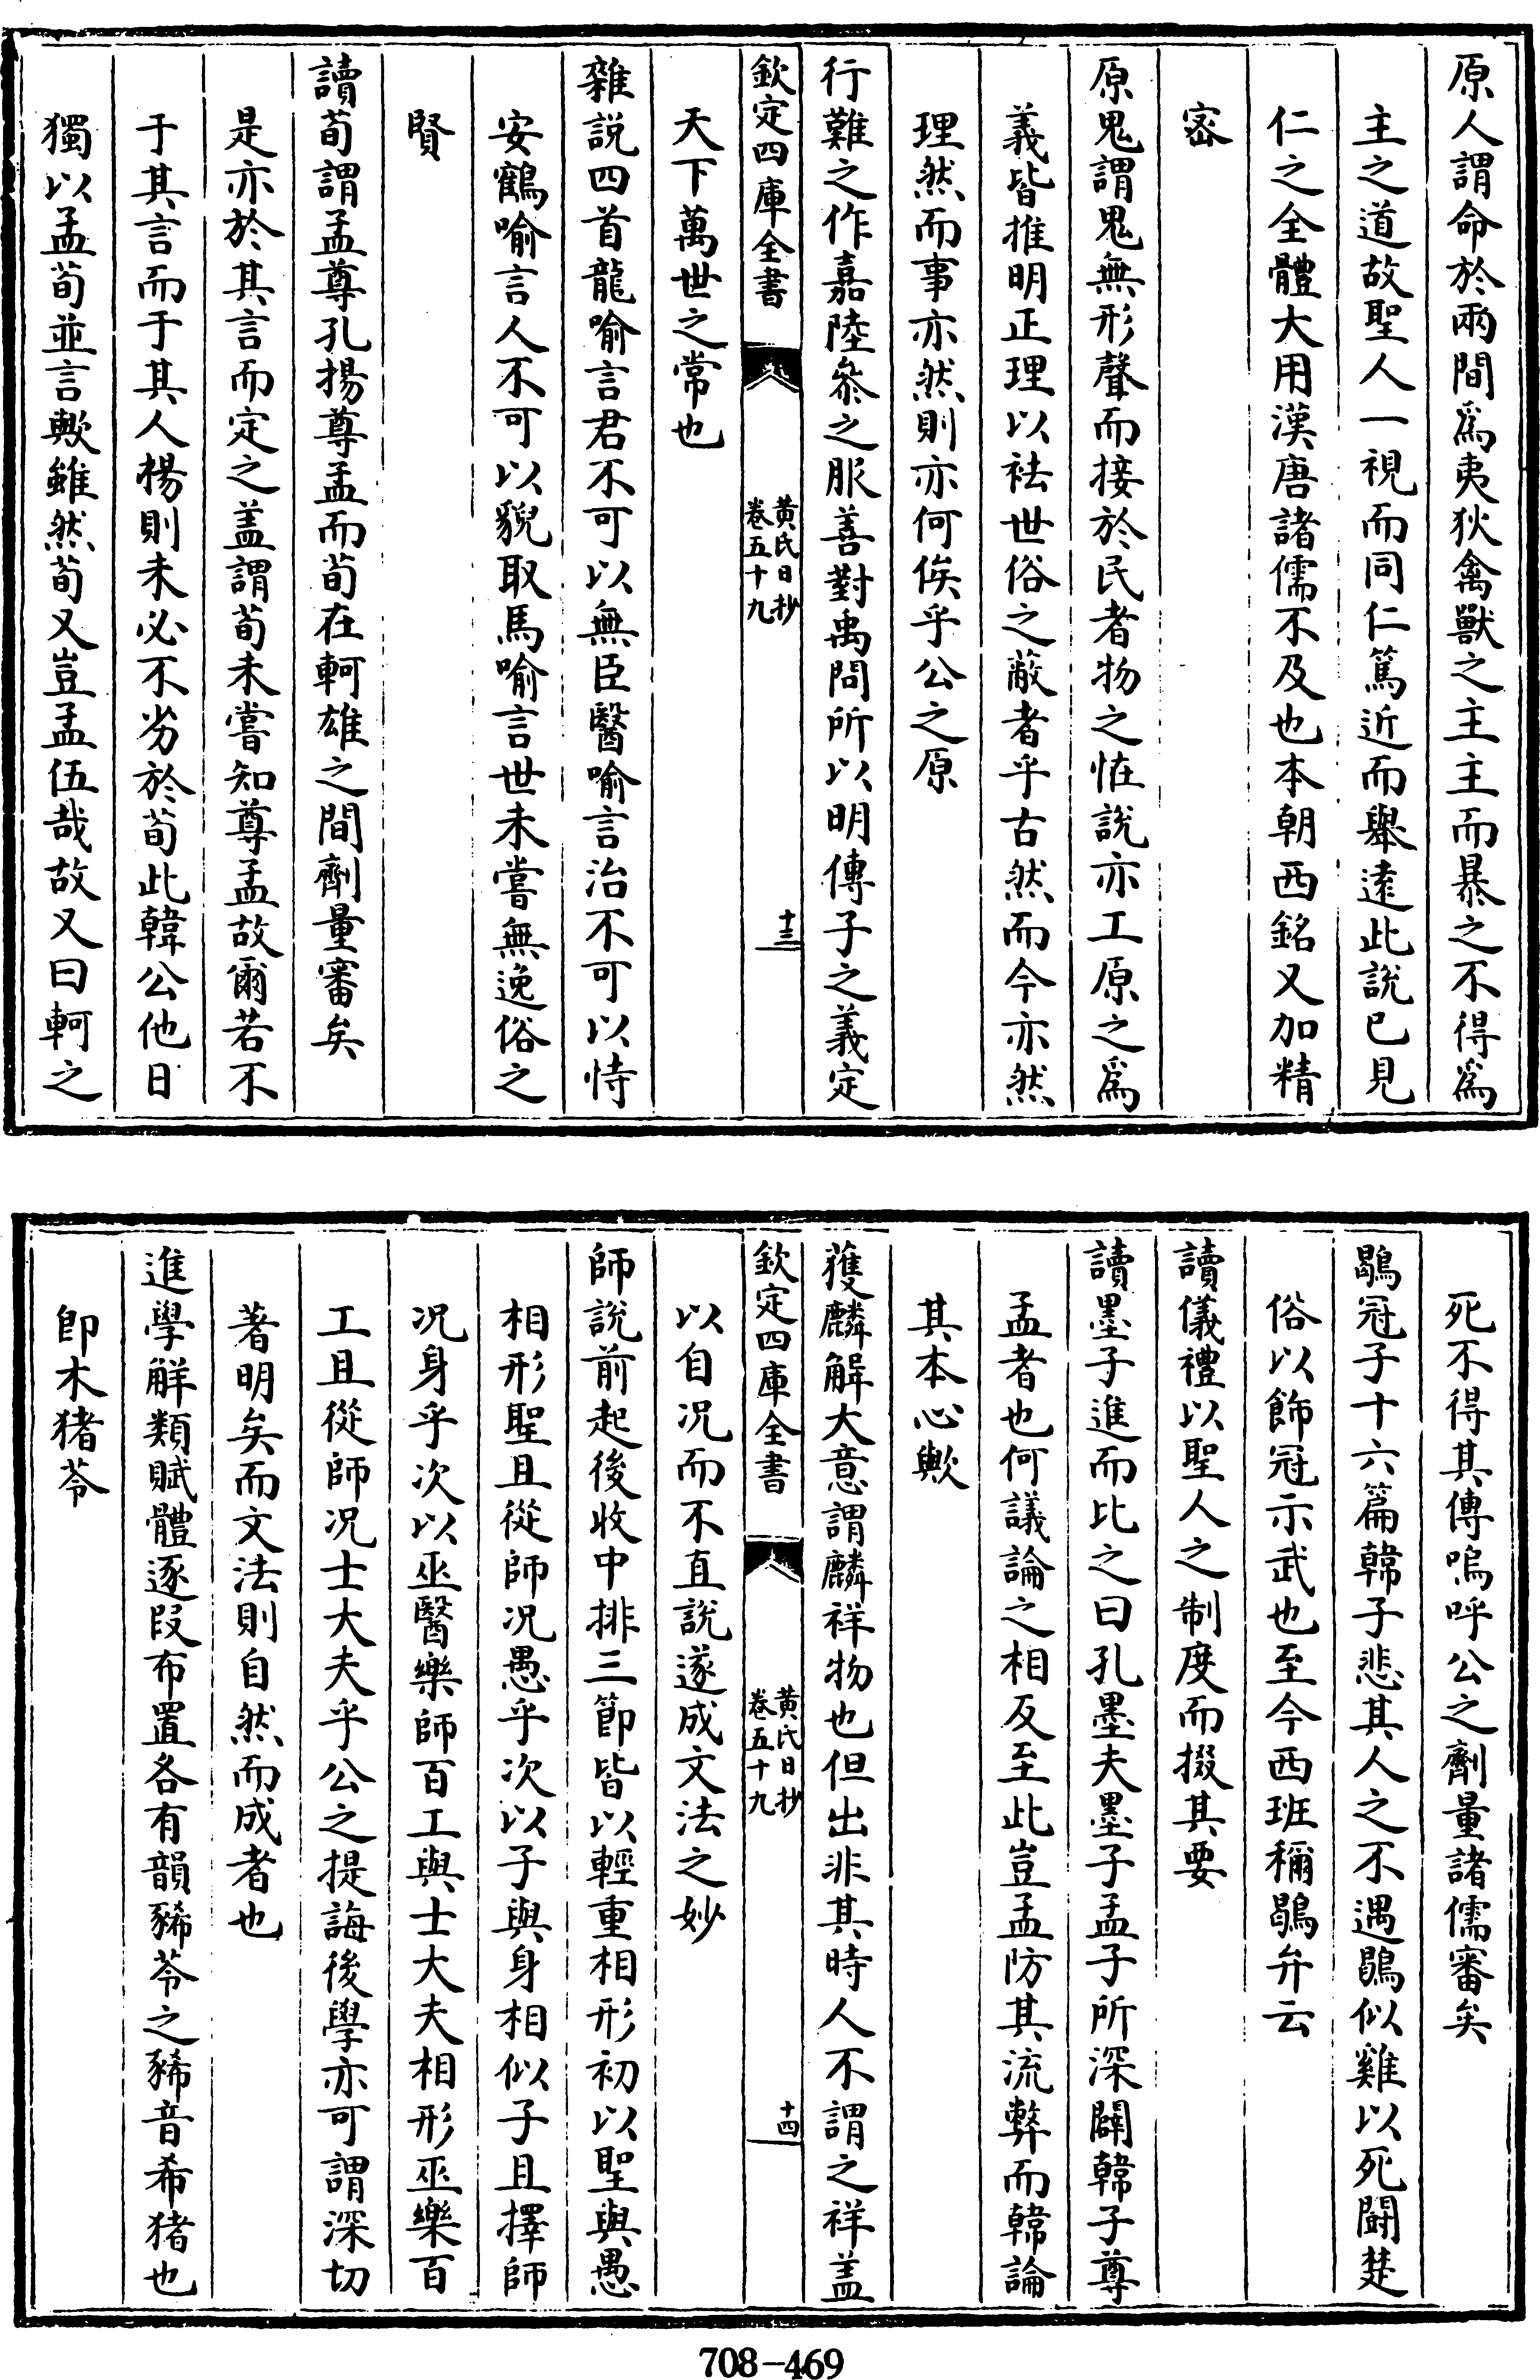 原人謂命於兩間爲夷狄禽獸之主主而暴之不得爲
主之道故聖人一視而同仁篤近而舉逺此說已見
仁之全體大用漢唐諸儒不及也本朝西銘又加精
宻
原鬼謂鬼無形聲而接於民者物之恠說亦工原之爲
義皆推明正理以袪世俗之蔽者乎古然而今亦然
理然而事亦然則亦何俟乎公之原
行難之作嘉陸叅之服善對禹問所以明傳子之義定
欽定四庫全書
黄氏日抄
卷五十九
十三
天下萬世之常也
雜說四首龍喻言君不可以無臣醫喻言治不可以恃
安鶴喻言人不可以貌取馬喻言世未嘗無逸俗之
賢
讀荀謂孟尊孔揚尊孟而荀在軻雄之間劑量審矣
是亦於其言而定之盖謂荀未嘗知尊孟故爾若不
于其言而于其人楊則未必不劣於荀此韓公他日
獨以孟荀並言歟雖然荀又豈孟伍哉故又曰軻之
死不得其傳嗚呼公之劑量諸儒審矣
鶡冠子十六篇韓子悲其人之不遇鶡似雞以死鬭楚
俗以飾冠示武也至今西班稱鶡弁云
讀儀禮以聖人之制度而掇其要
讀墨子進而比之曰孔墨夫墨子孟子所深闢韓子尊
孟者也何議論之相反至此豈孟防其流弊而韓論
其本心歟
獲麟解大意謂麟祥物也但出非其時人不謂之祥盖
欽定四庫全書
黄氏日抄
卷五十九
十四
以自况而不直說遂成文法之妙
師說前起後收中排三節皆以輕重相形初以聖與愚
相形聖且從師况愚乎次以子與身相似子且擇師
况身乎次以巫醫樂師百工與士大夫相形巫樂百
工且從師况士大夫乎公之提誨後學亦可謂深切
著明矣而文法則自然而成者也
進學解類賦體逐段布置各有韻豨苓之豨音希猪也
卽木猪苓
708-469